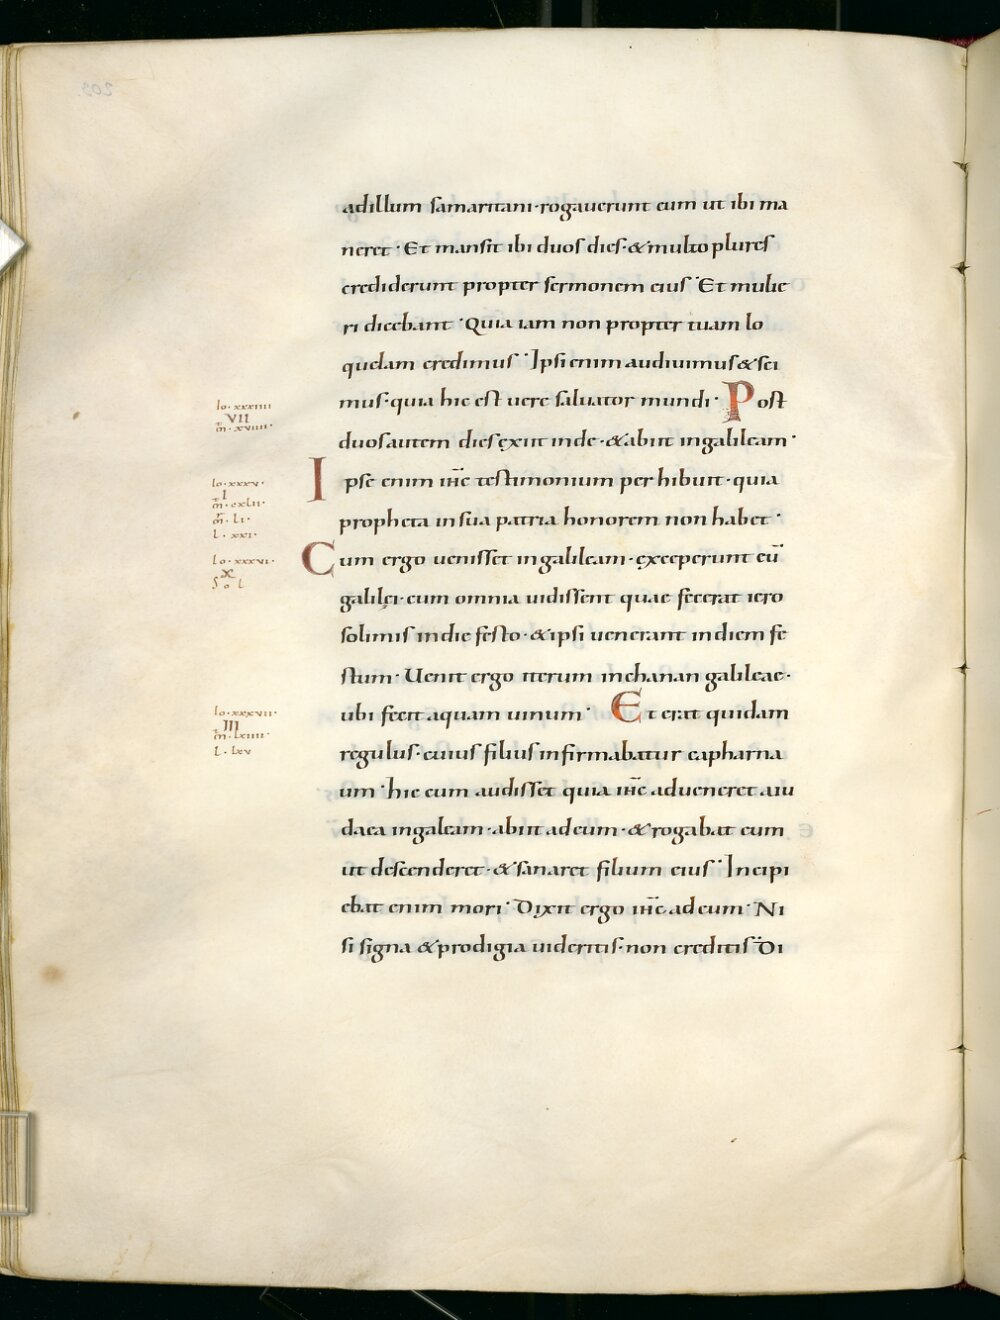 adillum samaritani · rogauerunt eum ut ibi ma
neret · Et mansit ibi duos dies · & multo plures
crediderunt propter sermonem eius · Et mulie
ri dicebant · Quia iam non propter tuam lo
quelam credimus · Ipsi enim audiuimus & sci
mus · quia hic est uere saluator mundi · Post
lo · xxxiiii
VII
m · xviiii ·
duos autem dies exiit inde · & abiit ingalileam ·
Ipse enim ihc testimonium per hibuit · quia
lo · xxxv ·
I
m · cxlii ·
mr · li ·
l · xxi ·
propheta in sua patria honorem non habet ·
Cum ergo uenisset ingalileam · exceperunt eū
lo · xxxvi ·
X
Sol
galilei · cum omnia uidissent quae fecerat iero
solimis in die festo · & ipsi uenerant in diem fe
stum · Uenit ergo iterum inchanan galileae ·
ubi fecit aquam uinum · Et erat quidam
lo · xxxvii ·
III
m · lxiiii ·
l · lxv
regulus · cuius filius infirmabatur capharna
um · hic cum audisset quia ihc adueneret aiu
daea ingaleam · abiit ad eum · & rogabat eum
ut descenderet · & sanaret filium eius · Incipi
ebat enim mori · Dixit ergo ihc ad eum · Ni
si signa & prodigia uideritis · non creditis · Di
203